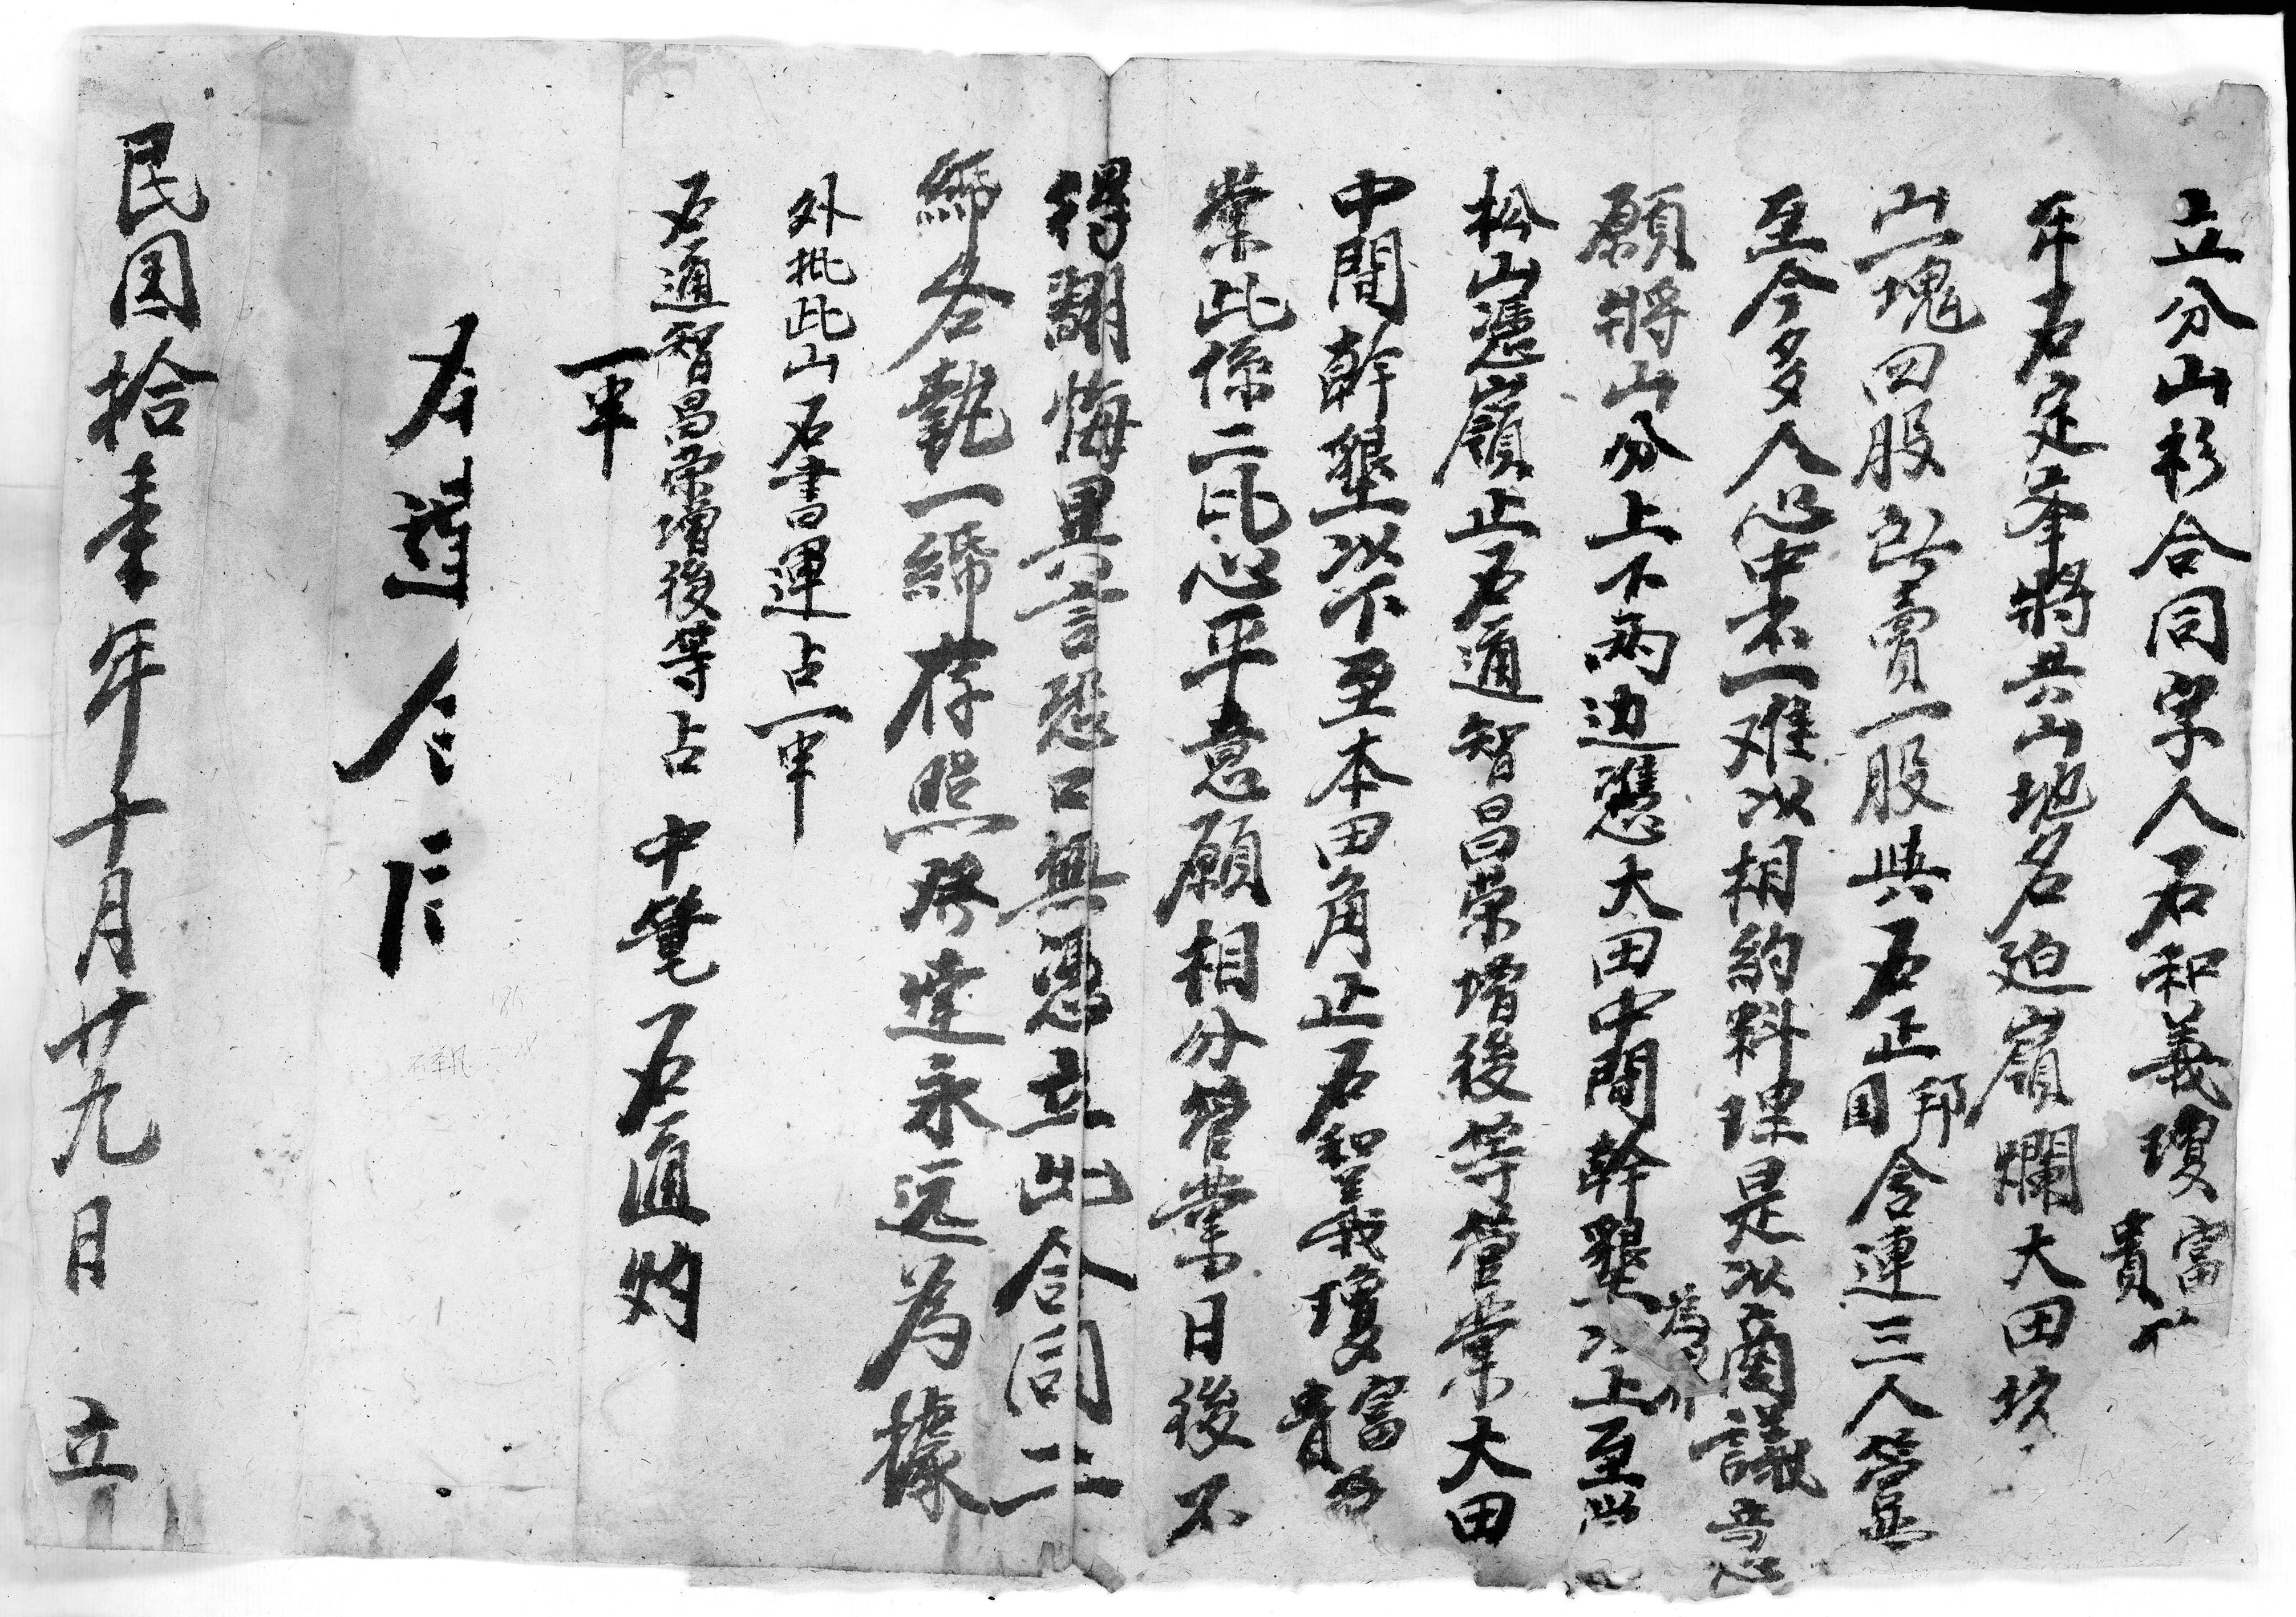 立分山杉合同字人石和義瓊富貴
年石定峯將共山地名廹嶺爛大田坎
山一塊四股賣一股與石正邦国合連三人管
至今多人心中不一难以相約料理是以啇議意
願將山分上下兩边憑大田中間幹墾為界以上至
松山憑嶺止石通智昌荣增後等管業大田
中間幹墾以下至本田角止石和義瓊富貴
業此係二比心平意願相分管業日後不
得翻悔異言恐口無憑立出合同二
締各執一締存照發達永远為據
外批此山石書運占一甲
石通智昌荣增後等占 中筆石通灼
一甲
民国拾壹年十月廿九日 立